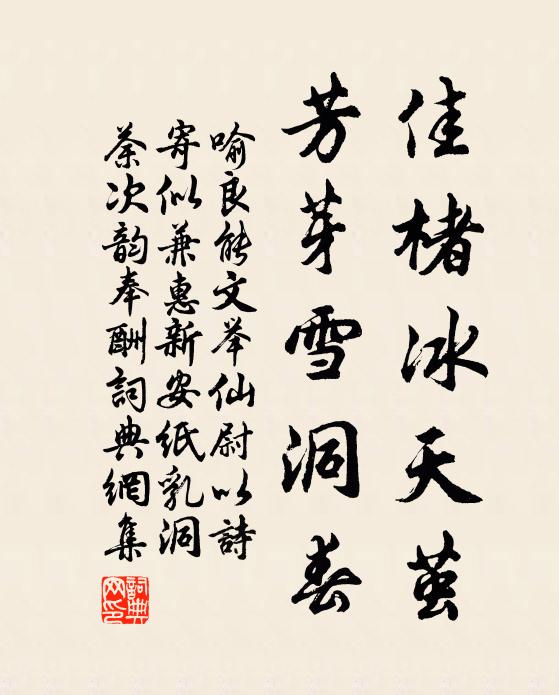 佳楮冰天茧
芳芽雪洞春
喻良能文举仙尉以詩
寄似兼惠新安纸乳洞
茶次韵奉酬詞典網集
詞典网印